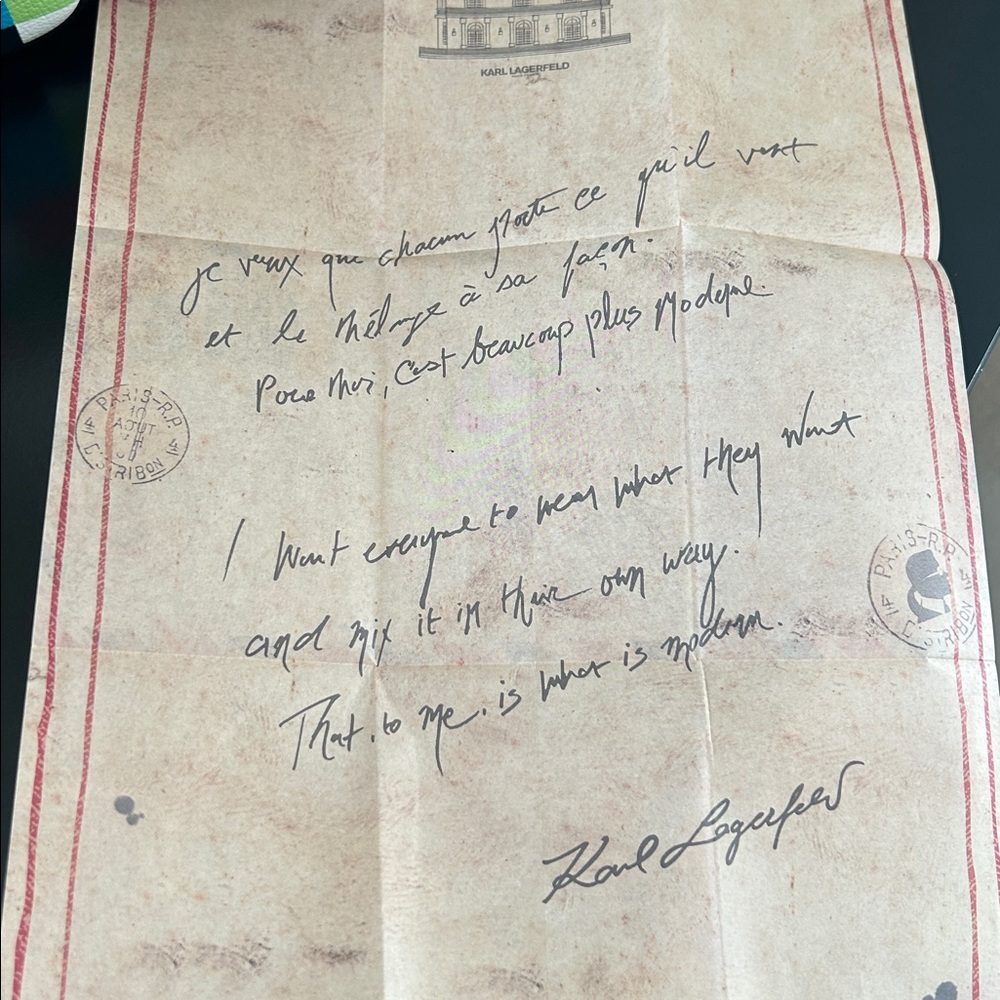 KARL LAGERFELD
je veux que chacun porte ce qu'il veut
et le mélange à sa façon.
Pour moi, c'est beaucoup plus moderne.
PARIS-R.P.
10
AOUT
I want everyone to wear what they want
and mix it in their own way.
PARIS-R.P.
That, to me, is what is modern.
Karl Lagerfeld